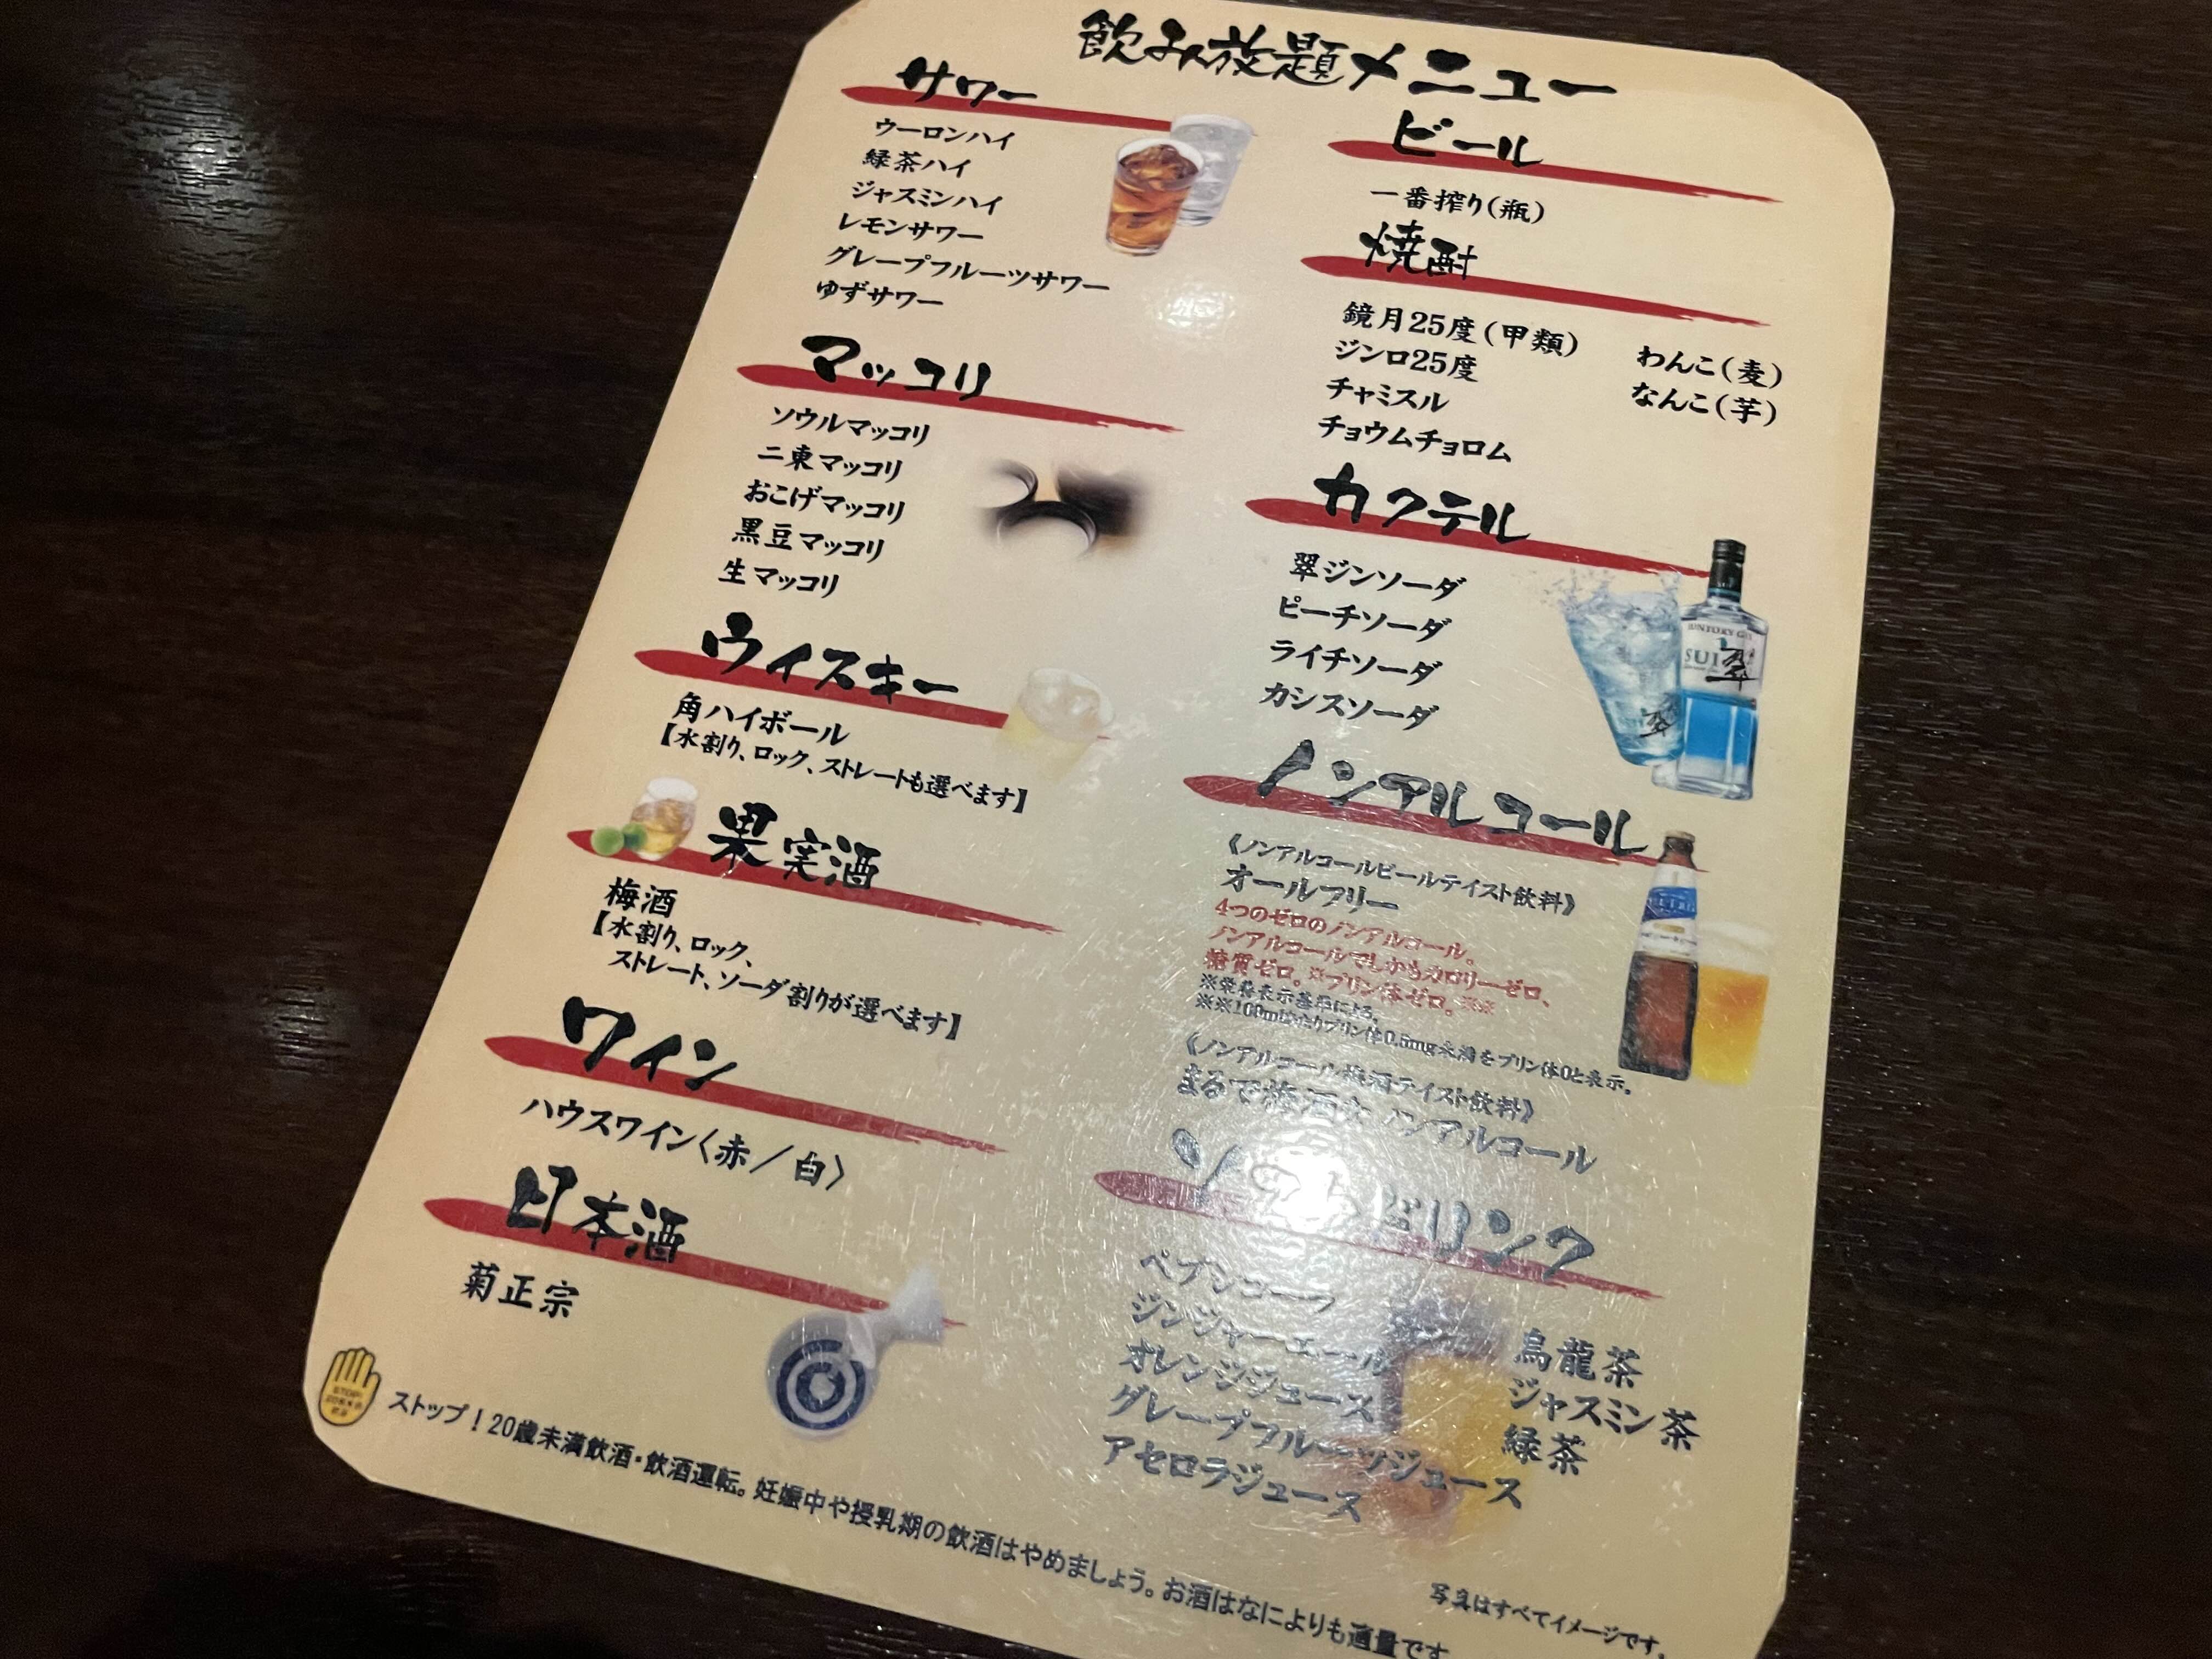 飲み放題メニュー
サワー
ウーロンハイ
緑茶ハイ
ジャスミンハイ
レモンサワー
グレープフルーツサワー
ゆずサワー
マッコリ
ソウルマッコリ
二東マッコリ
おこげマッコリ
黒豆マッコリ
生マッコリ
ウイスキー
角ハイボール
【水割り、ロック、ストレートも選べます】
果実酒
梅酒
【水割り、ロック、
ストレート、ソーダ割りが選べます】
ワイン
ハウスワイン〈赤／白〉
日本酒
菊正宗
ビール
一番搾り(瓶)
焼酎
鏡月25度(甲類)
ジンロ25度
チャミスル
チョウムチョロム
わんこ(麦)
なんこ(芋)
カクテル
翠ジンソーダ
ピーチソーダ
ライチソーダ
カシスソーダ
SUNTORY GIN
SUI
翠
翠
ノンアルコール
《ノンアルコールビールテイスト飲料》
オールフリー
4つのゼロのノンアルコール。
ノンアルコールでしかもカロリーゼロ、
糖質ゼロ。※プリン体ゼロ。※※
※栄養表示基準による。
※※100ml当たりプリン体0.5mg未満をプリン体0と表示。
《ノンアルコール梅酒テイスト飲料》
まるで梅酒なノンアルコール
ソフトドリンク
ペプシコーラ
ジンジャーエール
オレンジジュース
グレープフルーツジュース
アセロラジュース
烏龍茶
ジャスミン茶
緑茶
ストップ！20歳未満飲酒・飲酒運転。妊娠中や授乳期の飲酒はやめましょう。お酒はなによりも適量です
写真はすべてイメージです。